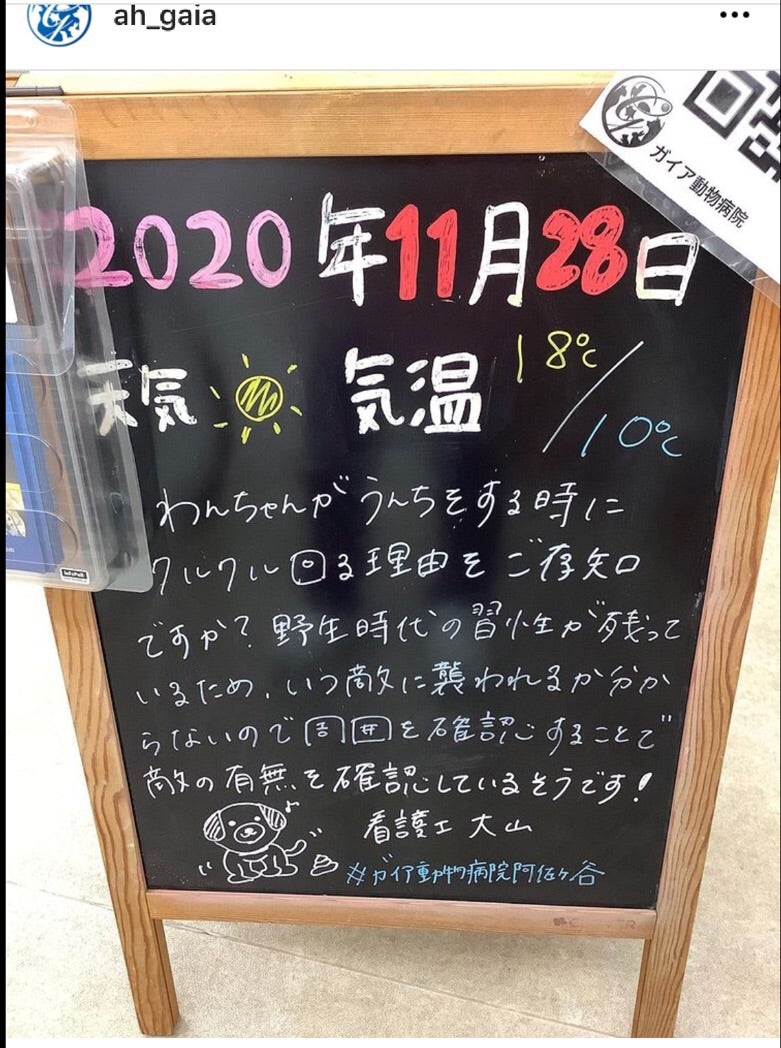 ah_gaia
ガイア動物病院
2020年11月28日
天気 気温 18℃/10℃
わんちゃんがうんちをする時に
クルクル回る理由をご存知
ですか?野生時代の習性が残って
いるため、いつ敵に襲われるか分か
らないので周囲を確認することで
敵の有無を確認しているそうです!
看護士 大山
#ガイア動物病院阿佐ヶ谷